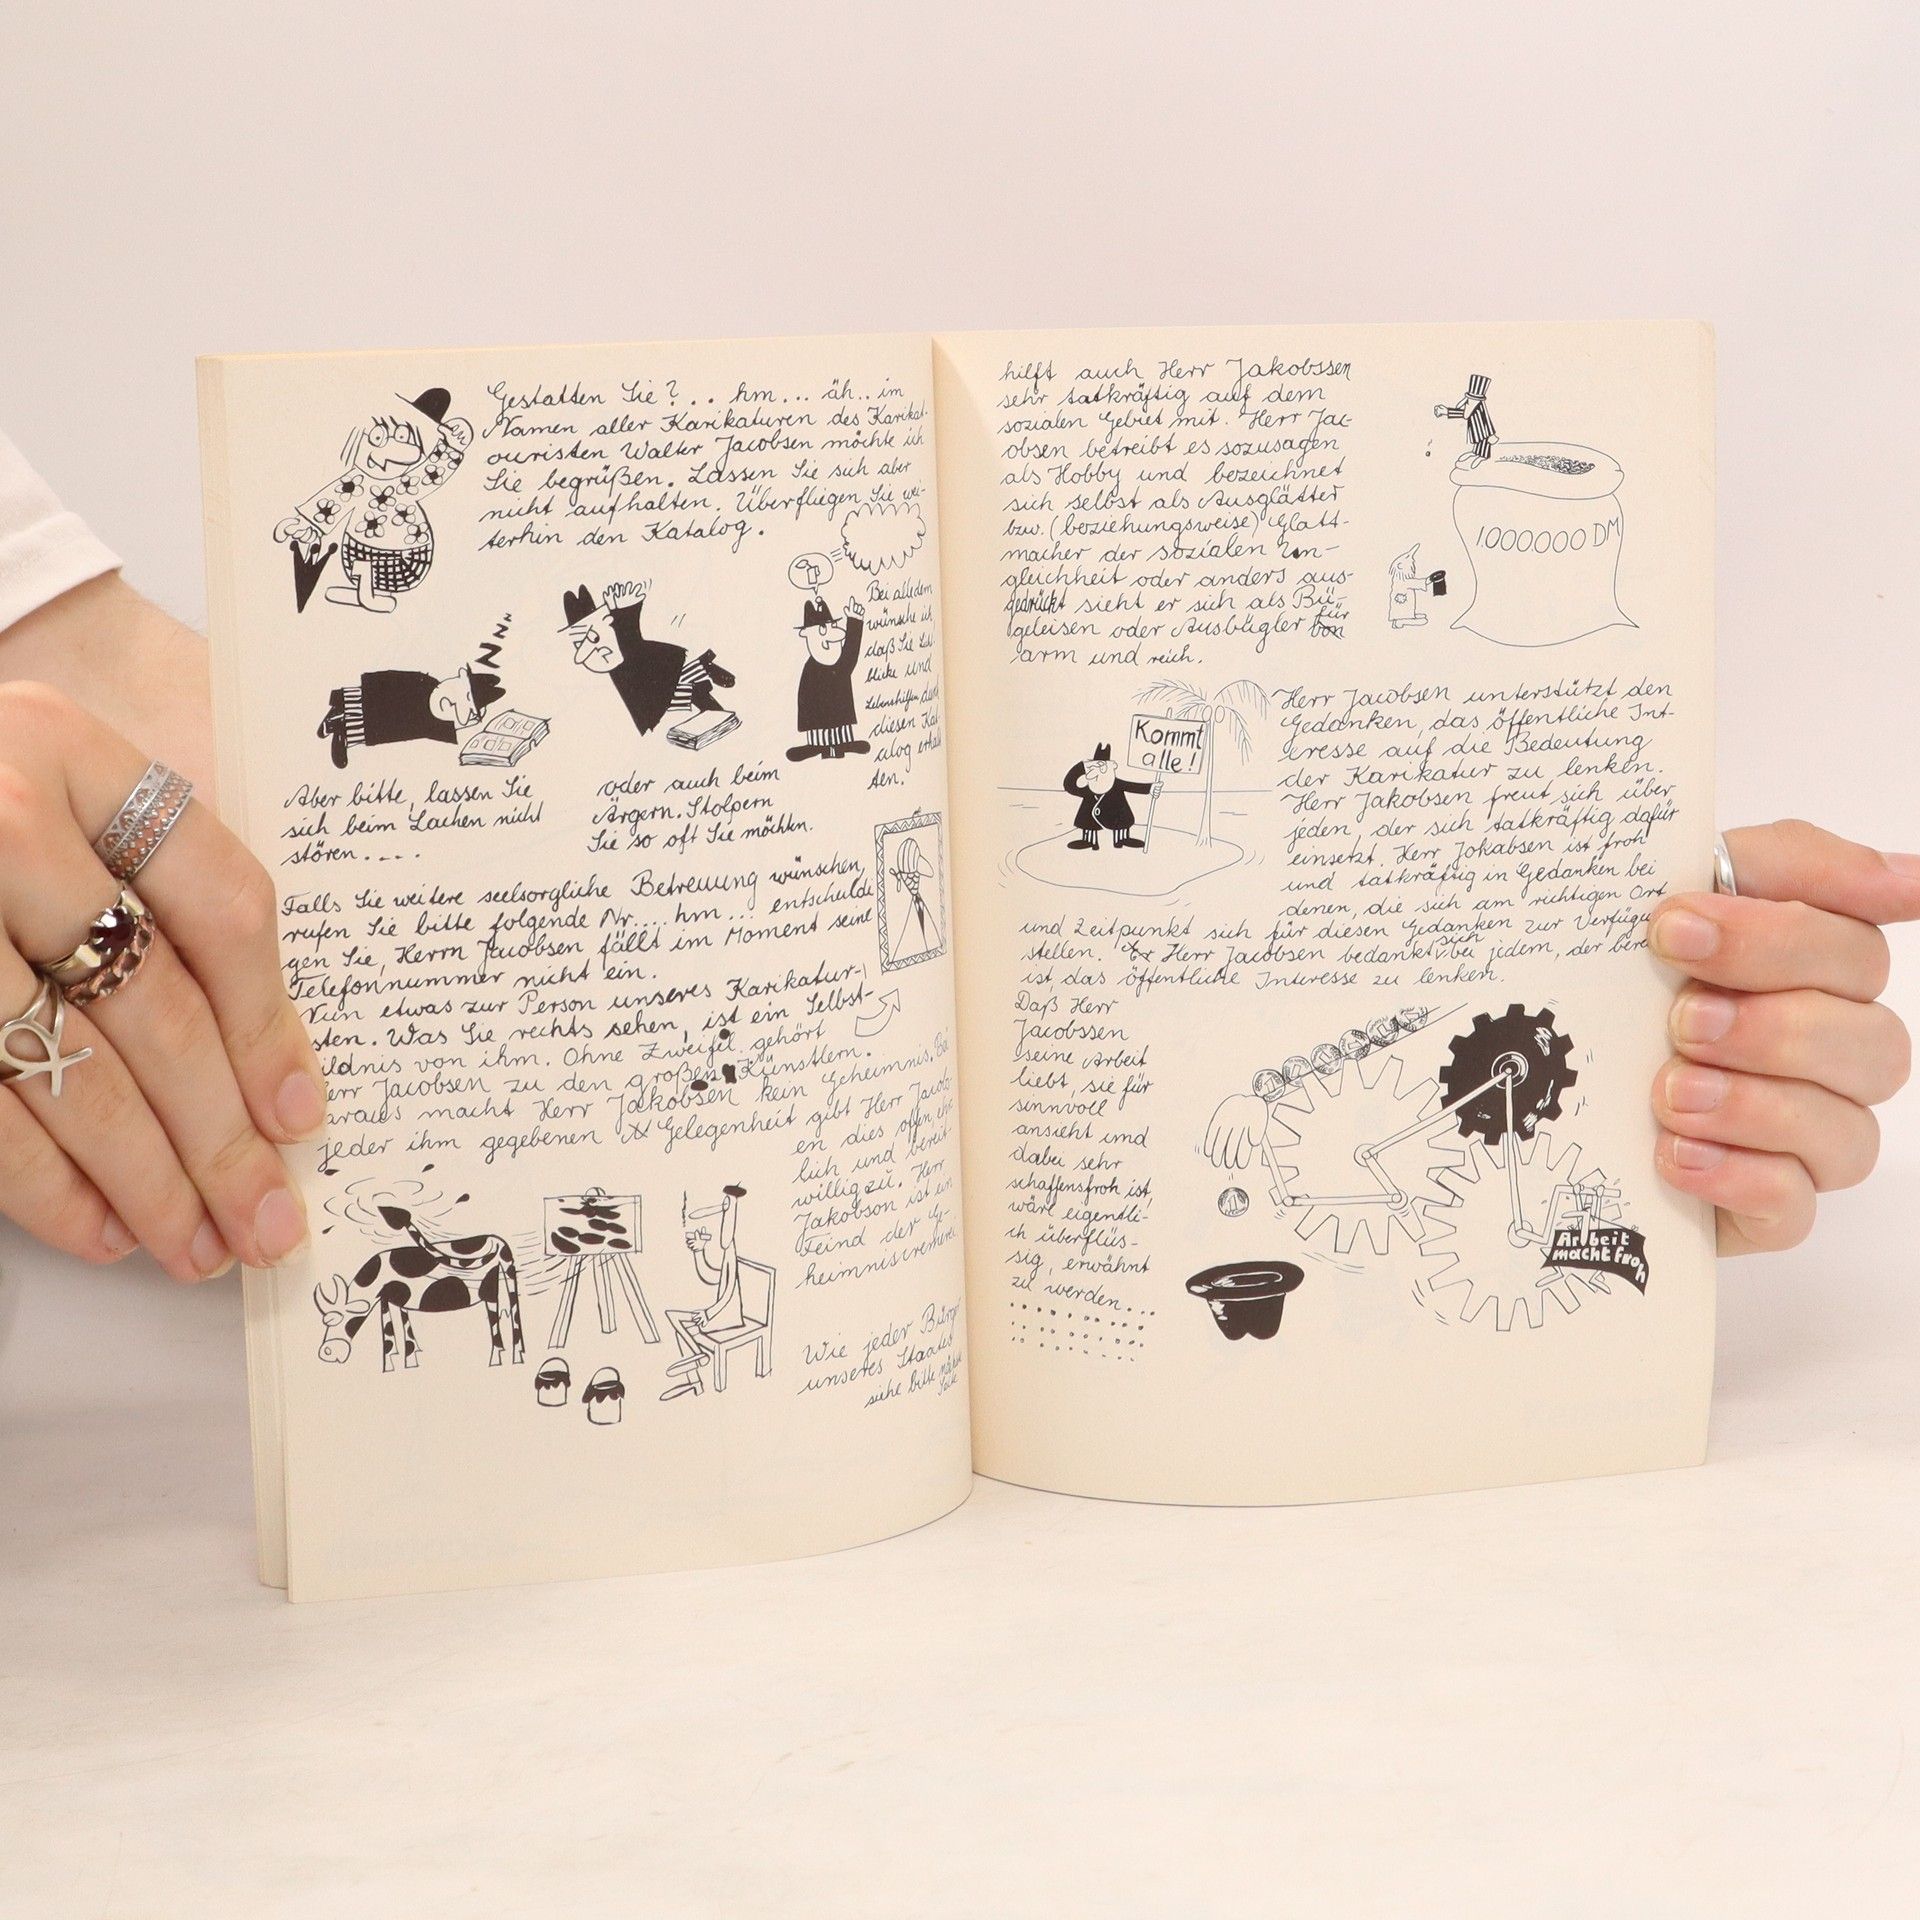 Gestatten Sie? .. hm... äh.. im
Namen aller Karikaturen des Karikat-
ouristen Walter Jacobsen möchte ich
Sie begrüßen. Lassen Sie sich aber
nicht aufhalten. Überfliegen Sie wei-
terhin den Katalog.
NNNN
Bei alledem
wünsche ich
daß Sie
blicke und
Lebenshilfen durch
diesen Kat-
alog erhal
ten.
Aber bitte, lassen Sie
sich beim Lachen nicht
stören....
oder auch beim
Ärgern. Stolpern
Sie so oft Sie möchten.
Falls Sie weitere seelsorgliche Betreuung wünschen,
rufen Sie bitte folgende Nr.... hm... entschuldi
gen Sie, Herrn Jacobsen fällt im Moment seine
Telefonnummer nicht ein.
Nun etwas zur Person unseres Karikatur-
sten. Was Sie rechts sehen, ist ein Selbst-
ildnis von ihm. Ohne Zweifel gehört
err Jacobsen zu den großen Künstlern.
araus macht Herr Jakobsen kein Geheimnis. Bei
jeder ihm gegebenen Gelegenheit gibt Herr Jacobs
en dies offen, ehr
lich und bereit-
willig zu. Herr
Jakobson ist ein
Feind der Ge-
heimniscremerei
Wie jeder Bürger
unseres Staates
siehe bitte nächste
Seite
hilft auch Herr Jakobssen
sehr tatkräftig auf dem
sozialen Gebiet mit. Herr Jac-
obsen betreibt es sozusagen
als Hobby und bezeichnet
sich selbst als Ausglätter
bzw. (beziehungsweise) Glatt-
macher der sozialen Un-
gleichheit oder anders aus-
gedrückt sieht er sich als Bü-
geleisen oder Ausbügler von für
arm und reich.
1.000000 DM
Kommt
alle!
Herr Jacobsen unterstützt den
Gedanken, das öffentliche Int-
eresse auf die Bedeutung
der Karikatur zu lenken.
Herr Jakobsen freut sich über
jeden, der sich tatkräftig dafür
einsetzt. Herr Jokabsen ist froh
und tatkräftig in Gedanken bei
denen, die sich am richtigen Ort
und Zeitpunkt sich für diesen Gedanken zur Verfügu
stellen. Er Herr Jacobsen bedankt sich bei jedem, der bere
ist, das öffentliche Interesse zu lenken.
Daß Herr
Jacobssen
seine Arbeit
liebt, sie für
sinnvoll
ansieht und
dabei sehr
schaffensfroh ist,
wäre eigentli-
ch überflüs-
sig, erwähnt
zu werden...
Arbeit
macht froh